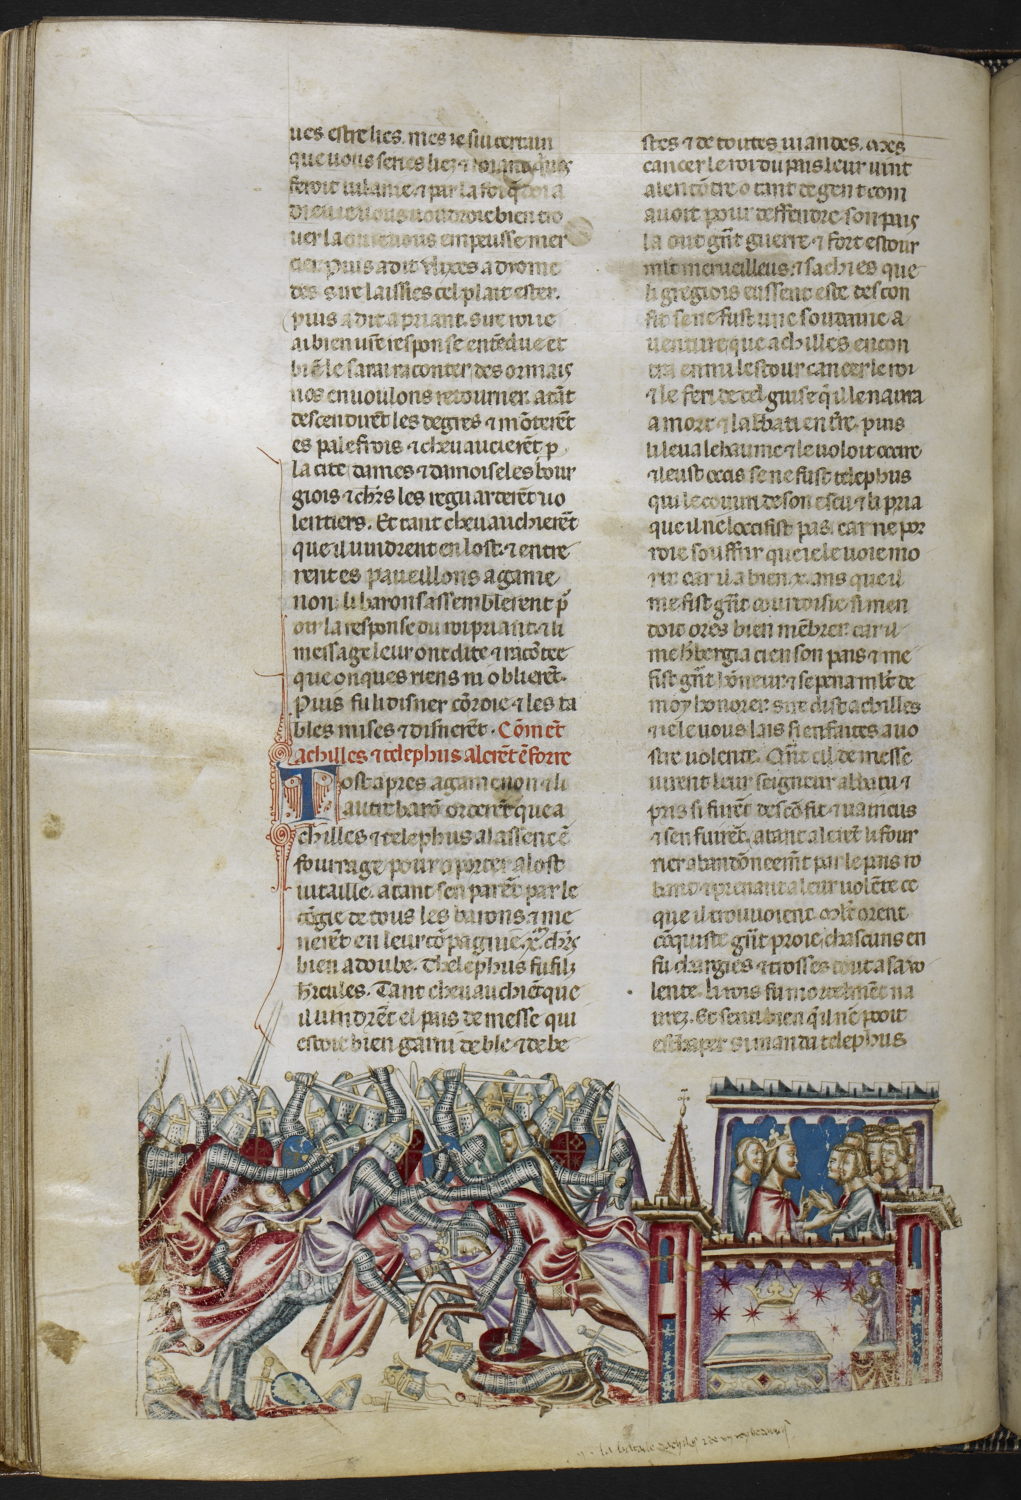 ues estre lies. mes ie sui certain
que uous series liez ⁊
feroit uilanie. ⁊ par la foi q̃ doi a
dieu ie uous uoudroie bien tro
uer la ou ie uous en peusse mer
cier. Puis a dit Vlixes a diome
des. Sire laissies cel plait ester.
puis a dit a priant. Sire roi ie
ai bien ur̃e response entẽdue et
biẽ le sarai raconter. des ormais
nos en uoulons retourner. atãt
descendirẽt les degres ⁊ mõterẽt
es palefrois ⁊ cheuaucierẽt p̲
la cite. dames ⁊ damoiseles bour
giois ⁊ chr̃s les reguarderẽt uo
lentiers. Et tant cheuauchierẽt
que il uindrent en lost. ⁊ entre
rent es paueillons agame
non. li baron sassemblerent p̃
oir la response du roi priant. ⁊ li
message leur ont dite ⁊ racõtee
que onques riens ni oblierẽt.
Puis fu li disner cõroie ⁊ les ta
bles mises ⁊ disnerẽt. Cõmẽt
achilles ⁊ telephus alerẽt ẽ forre
Tost apres agamenon ⁊ li
autre barõ ordenerẽt que a
chilles ⁊ telephus alassent ẽ
fourrage pour aporter a lost
uitaille. atant sen partẽt par le
cõgie de tous les barons. ⁊ me
nerẽt en leur cõpagnie. chr̃s
bien adoube. Thelephus fu filz
hercules. Tant cheuauchierẽt que
il uindrẽt el pais de messe qui
estoit bien garni de ble ⁊ de be
stes ⁊ de toutes uiandes. mes
cancer le roi du pais leur uint
alencõtre o tant de gent com
auoit pour deffendre son pais
la out gñt guerre ⁊ fort estour
mlt merueilleus. ⁊ sachies que
li gregiois eussent este descon
fit se ne fust une soudaine a
uenture que achilles encon
tra enmi lestour cancer le roi
⁊ le feri de tel guise q̃ il le naura
a mort ⁊ labbati en t̃re. puis
li leua le hiaume ⁊ le uoloit occire
⁊ leust occis se ne fust telephus
qui le couuri de son escu ⁊ li pria
que il ne loccisist pas. car ne por
roie souffrir que ie le uoie mo
rir car il a bien .x. ans que il
me fist gñt courtoisie. si men
doit ores bien mẽbrer. car il
me hr̃bergia cien son pais ⁊ me
fist gñt hõneur ⁊ se pena mlt de
moy honorer. sire dist achilles
⁊ ie le uous lais si en faites a uo
stre uolente. Qñt cil de messe
uirent leur seigneur abbatu ⁊
pris si furẽt descõfit ⁊ uaincus
⁊ sen fuirẽt. atant alerẽt li four
rier abandõneemẽt par le pais ro
bant ⁊ prenant a leur uolẽte ce
que il trouuoient. mlt orent
cõquiste gñt proie. chascuns en
fu chargies ⁊ trosses tout a sa uo
lente. li rois fu mortelmẽt na
urez. Et senti bien q̃ il ne pooit
eschaper si manda telephus
la bataile dachiles ⁊ de